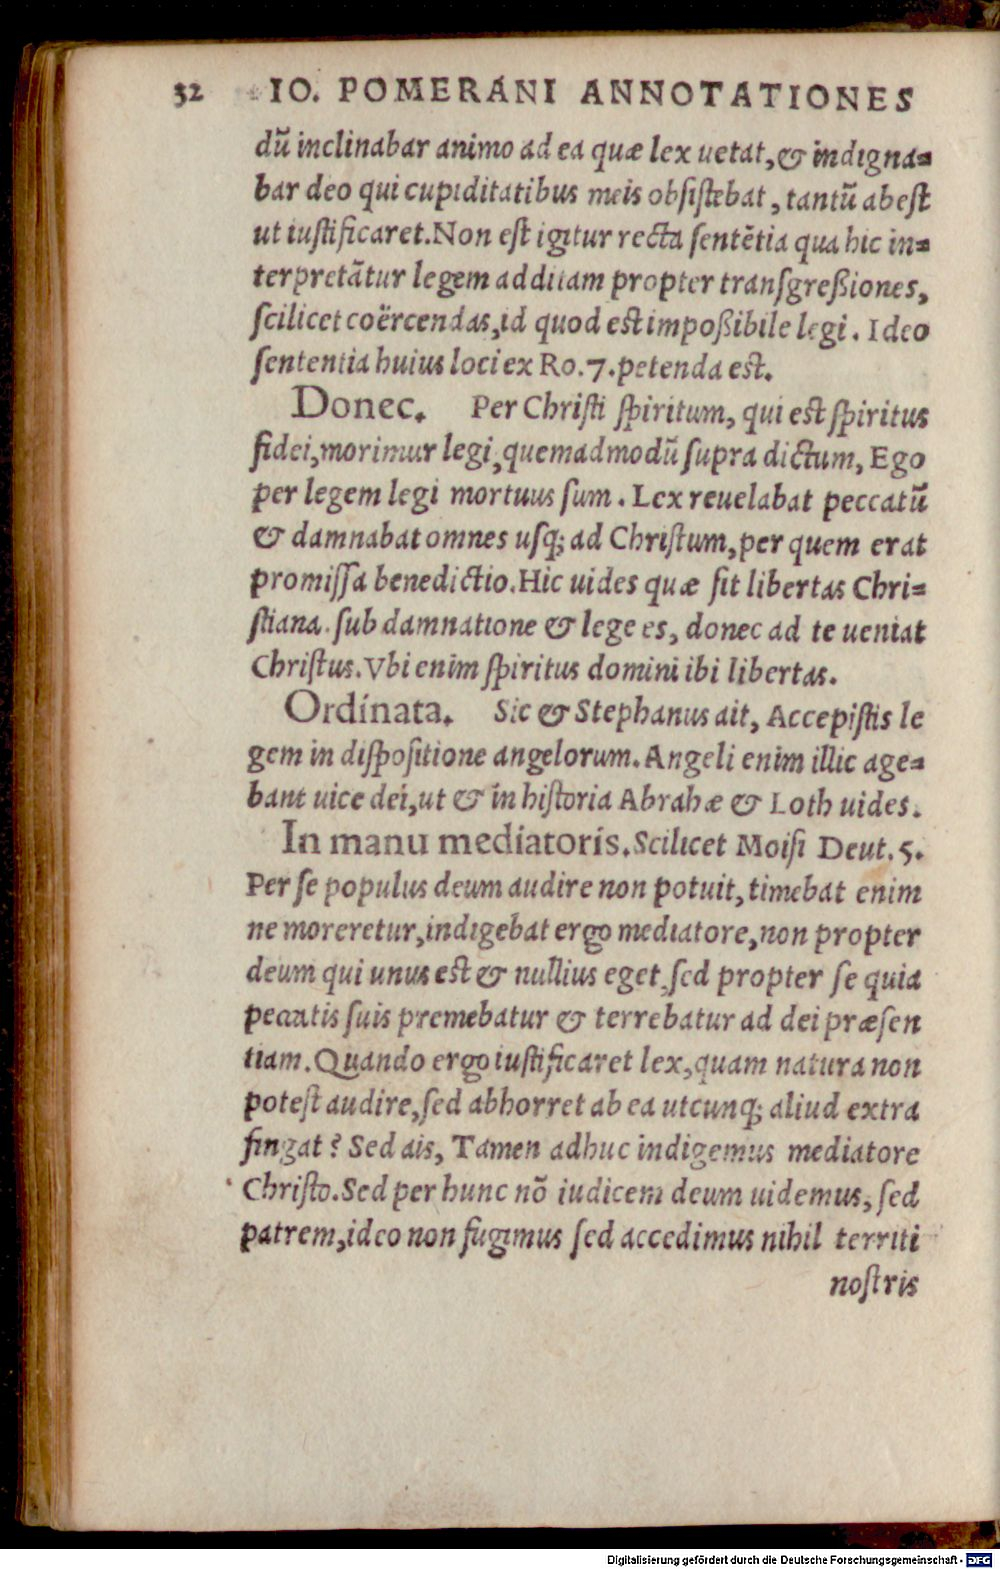 32 IO. POMERANI ANNOTATIONES
dũ inclinabar animo ad ea quæ lex uetat, & indigna=
bar deo qui cupiditatibus meis obſiſtebat, tantũ abeſt
ut iuſtificaret. Non eſt igitur recta ſentẽtia qua hic in=
terpretãtur legem additam propter tranſgreßiones,
ſcilicet coërcendas, id quod eſt impoßibile legi. Ideo
ſententia huius loci ex Ro. 7. petenda eſt.
Donec. Per Chriſti ſpiritum, qui eſt ſpiritus
fidei, morimur legi, quemadmodũ ſupra dictum, Ego
per legem legi mortuus ſum. Lex reuelabat peccatũ
& damnabat omnes uſq; ad Chriſtum, per quem erat
promiſſa benedictio. Hic uides quæ ſit libertas Chri=
ſtiana. ſub damnatione & lege es, donec ad te ueniat
Chriſtus. Vbi enim ſpiritus domini ibi libertas.
Ordinata. Sic & Stephanus ait, Accepiſtis le
gem in diſpoſitione angelorum. Angeli enim illic age=
bant uice dei, ut & in hiſtoria Abrahæ & Loth uides.
In manu mediatoris. Scilicet Moiſi Deut. 5.
Per ſe populus deum audire non potuit, timebat enim
ne moreretur, indigebat ergo mediatore, non propter
deum qui unus eſt & nullius eget, ſed propter ſe quia
peccatis ſuis premebatur & terrebatur ad dei præſen
tiam. Quando ergo iuſtificaret lex, quam natura non
poteſt audire, ſed abhorret ab ea utcunq; aliud extra
fingat? Sed ais, Tamen adhuc indigemus mediatore
Chriſto. Sed per hunc nõ iudicem deum uidemus, ſed
patrem, ideo non fugimus ſed accedimus nihil territi
noſtris
Digitalisierung gefördert durch die Deutsche Forschungsgemeinschaft - DFG